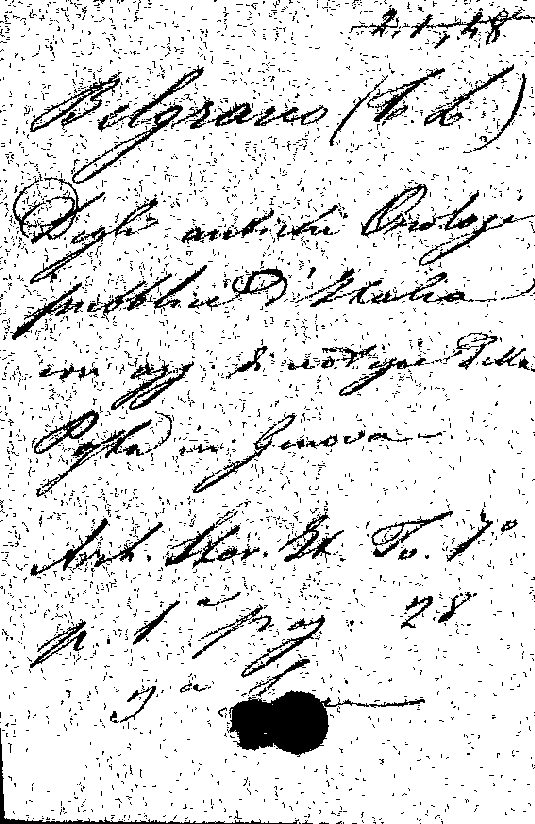 2.1,48
Belgrano (L. L.)
Degli antichi Orologi
pubblici d'Italia
con agg. di notizie della
Posta in Genova
Arch. Stor. It. To. 7º
p. 1ª pag. 28